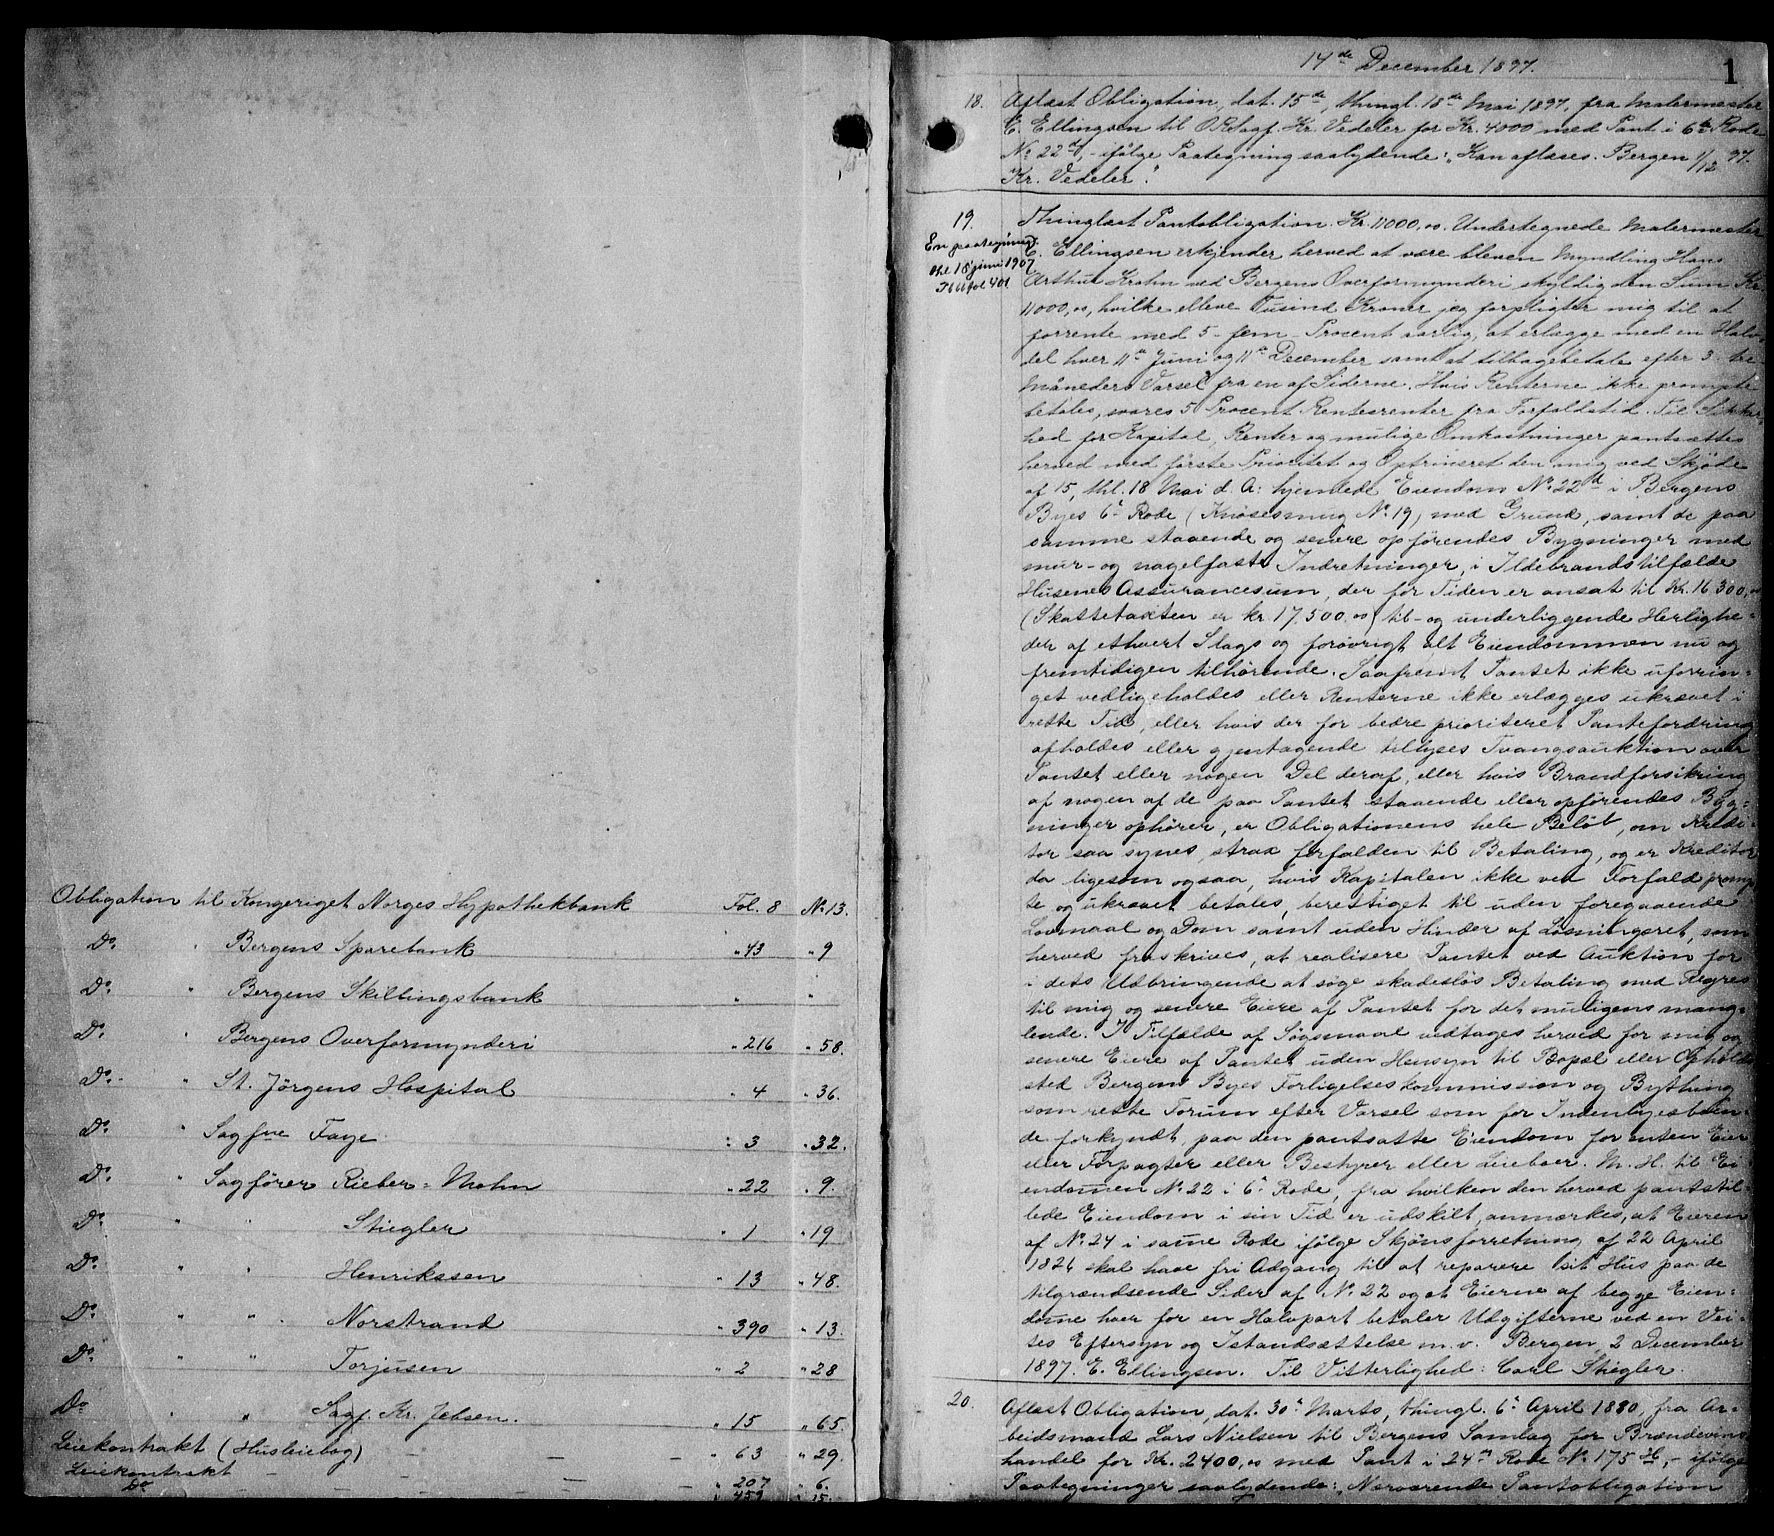 Obligation til Kongeriget Norges Hypothekbank Fol. 8 No 13.
Do. " Bergens Sparebank " 43 " 9
Do. " Bergens Skillingsbank " "
Do. " Bergens Overformynderi " 216 " 58.
Do. " St. Jørgens Hospital " 4 " 36.
Do. " Sagføe Faye " 3 " 32.
Do. " Sagfører Rieber-Mohn " 22 " 9.
Do. " " Stiegler " 1 " 19
Do. " " Henrikssen " 13 " 48.
Do. " " Norstrand " 390 " 13.
Do. " " Torjusen " 2 " 28
Do " " Sagf. Kr. Jebsen. " 15 " 65.
Leiekontrakt (Husleiebog) " 63 " 29.
Leiekontrakt " 207 " 6.
Do " 459 " 15.
14de December 1897. 1
18. Aflæst Obligation, dat. 15de, thingl. 18de Mai 1897, fra Malermester
E. Ellingsen til ORSagf. Kr. Vedeler for Kr. 4000 med Pant i 6te Rode
No 22d, - ifølge Paategning saalydende: "Kan aflæses. Bergen 1/12 97.
Kr. Vedeler."
19. Thinglæst Pantobligation. Kr. 11000,00. Undertegnede Malermester
En paategning
thl 18 juni 1907
E. Ellingsen erkjender herved at være bleven Myndling Hans
Arthur Krohn ved Bergens Overformynderi skyldig den Sum Kr.
11000,00, hvilke elleve Tusind Kroner jeg forpligter mig til at
forrente med 5 - fem - Procent aarlig, at erlægge med en Halv-
del hver 11te Juni og 11te December samt at tilbagebetale efter 3 - tre
Måneders Varsel fra en af Siderne. Hvis Renterne ikke prompte
betales, svares 5 Procent Rentesrenter fra Forfaldstid. Til Sikker-
hed for Kapital, Renter og mulige Omkostninger pantsættes
herved med første Prioritet og Optrinsret den mig ved Skjøde
af 15, thl. 18 Mai d. A. hjemlede Eiendom No 22d i Bergens
Byes 6te Rode (Knøsesmug No 19) med Grund, samt de paa
samme staaende og senere opførendes Bygninger med
mur- og nagelfaste Indretninger, i Ildebrandstilfælde
Husenes Assurancesum, der for Tiden er ansat til Kr. 16 300,00
(Skattetaxten er kr 17,500.00) til- og underliggende Herlighe-
der af ethvert Slags og forøvrigt alt Eiendommen nu og
fremtidigen tilhørende. Saafremt Pantet ikke uforrin-
get vedligeholdes eller Renterne ikke erlægges ukrævet i
rette Tid, eller hvis der for bedre prioriteret Pantefordring
afholdes eller gjentagende tillyses Tvangsauktion over
Pantet eller nogen Del deraf, eller hvis Brandforsikring
af nogen af de paa Pantet staaende eller opførendes Byg-
ninger ophører, er Obligationens hele Beløb, om Kredi-
tor saa synes, strax forfalden til Betaling, og er Kreditor
da ligesom ogsaa, hvis Kapitalen ikke ved Forfald promp-
te og ukrævet betales, berettiget til uden foregaaende
Lovmaal og Dom samt uden Hinder af Løsningsret, som
herved fraskrives, at realisere Pantet ved Auktion for
i dets Udbringende at søge skadesløs Betaling med Regres
til mig og senere Eiere af Pantet for det muligens mang-
lende. I Tilfælde af Søgsmaal vedtages herved for mig og
senere Eiere af Pantet uden Hensyn til Bopæl eller Opholds-
sted Bergens Byes Forligelseskommission og Bything
som rette Forum efter Varsel som for Indenbyesboen-
de forkyndt paa den pantsatte Eiendom for enten Eier
eller Forpagter eller Bestyrer eller Leieboer. M. H. til Ei-
endomen No 22 i 6te Rode, fra hvilken den herved pantstil-
lede Eiendom i sin Tid er udskilt, anmærkes, at Eieren
af No 24 i same Rode ifølge Skjønsforretning af 22 April
1826 skal have fri Adgang til at reparere sit Hus paa de
tilgrændsende Sider af No 22 og at Eierne af begge Eien-
dome hver for en Halvpart betaler Udgifterne ved en Vei-
tes Eftersyn og Istandsættelse m. v. Bergen, 2 December
1897. E. Ellingsen. Til Vitterlighed: Carl Stiegler.
20. Aflæst Obligation, dat. 30te Marts, thingl. 6te April 1880, fra Ar-
beidsmand Lars Nielsen til Bergens Samlag for Brændevins-
handel for Kr. 2400,00 med Pant i 24de Rode No 175 - ifølge
Paategninger saalydende: "Nærværende Pantobligation